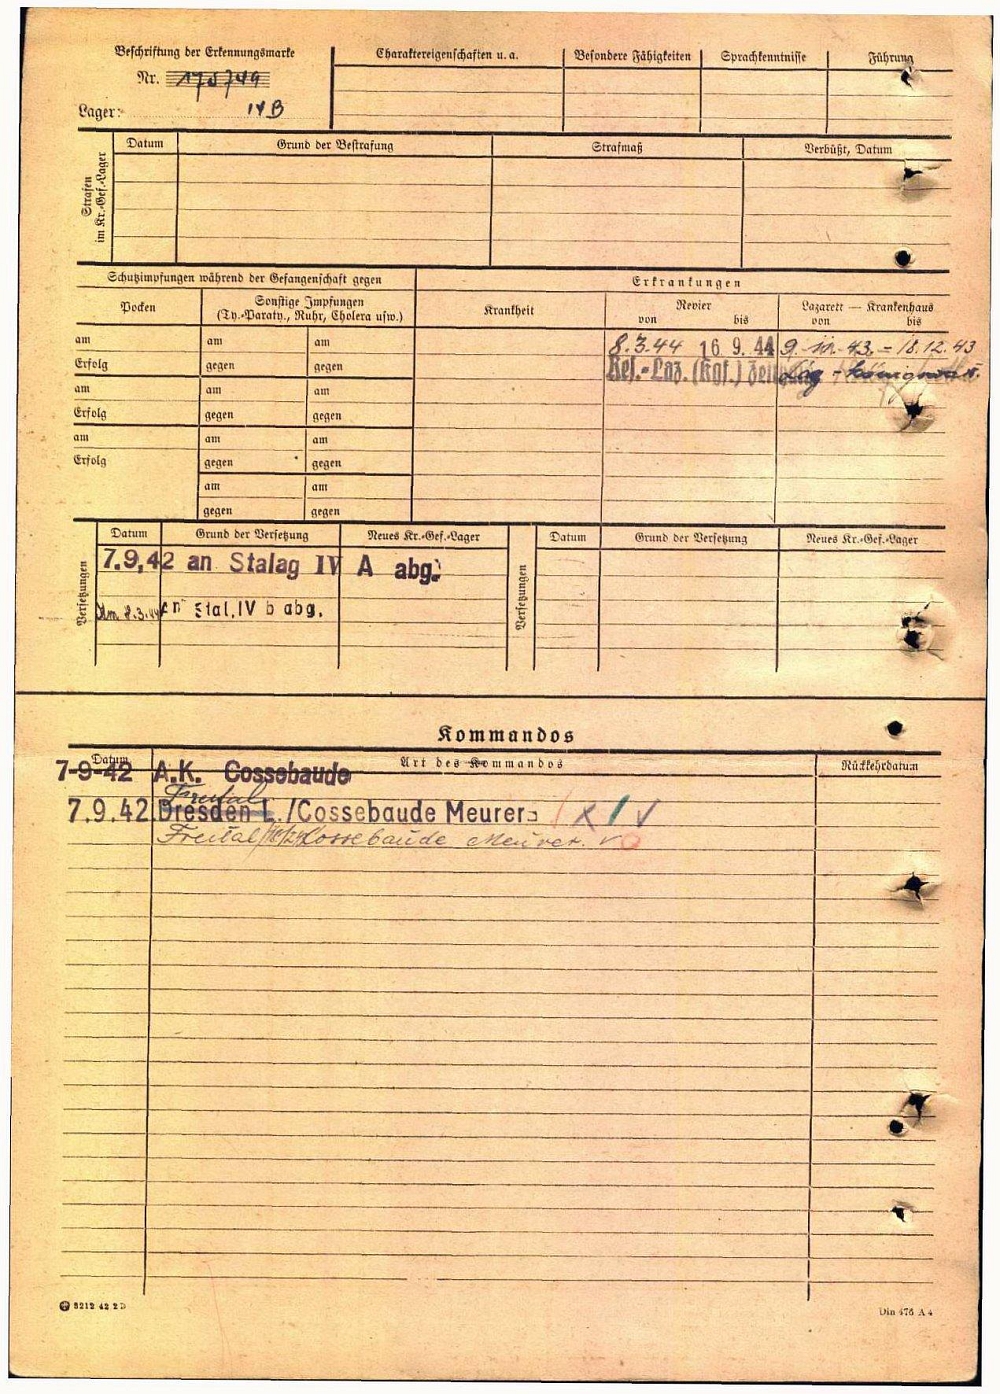 Beschriftung der Erkennungsmarke
Nr. 175749
Lager: IV B
Charaktereigenschaften u. a.
Besondere Fähigkeiten
Sprachkenntnisse
Führung
Strafen im Kr.-Gef.-Lager
Datum
Grund der Bestrafung
Strafmaß
Verbüßt, Datum
Schutzimpfungen während der Gefangenschaft gegen
Erkrankungen
Pocken
Sonstige Impfungen
(Ty.-Paraty., Ruhr, Cholera usw.)
Krankheit
Revier
von bis
Lazarett — Krankenhaus
von bis
am am am
8.3.44 16 9. 44 9. 43. - 18.12.43
Erfolg gegen gegen
Res.-Laz. (Kgf.)
am am am
Erfolg gegen gegen
am am am
Erfolg gegen gegen
am am
gegen gegen
Versetzungen
Datum Grund der Versetzung Neues Kr.-Gef.-Lager
7.9,42 an Stalag IV A abg.
8.3.44 an Stal. IV b abg.
Versetzungen
Datum Grund der Versetzung Neues Kr.-Gef.-Lager
Kommandos
Datum Art des Kommandos Rückkehrdatum
7-9-42 A.K. Cossebaude
Freital
7.9.42 Dresden L. /Cossebaude Meurer
Freital Cossebaude Meurer.
8212 42 2 D
Din 476 A 4